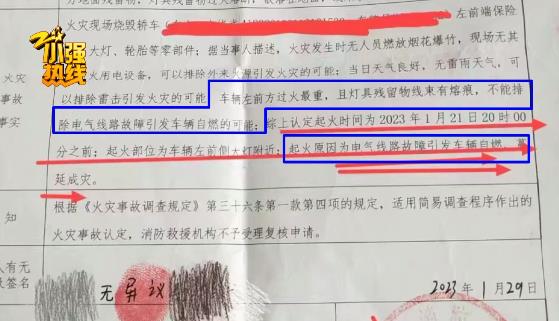 小强热线
火灾现场烧毁轿车（
左前端保险
大灯、轮胎等零部件；据当事人描述，火灾发生时无人员燃放烟花爆竹，现场无其
火用电设备，可以排除外来火源引发火灾的可能；当日天气良好，无雷雨天气，可
以排除雷击引发火灾的可能
车辆左前方过火最重，且灯具残留物线束有熔痕，不能排
除电气线路故障引发车辆自燃的可能；综上认定起火时间为2023年1月21日20时00
分之前；起火部位为车辆左前侧大灯附近；起火原因为电气线路故障引发车辆自燃
延成灾。
火灾
事故
事实
根据《火灾事故调查规定》第三十六条第一款第四项的规定，适用简易调查程序作出的
火灾事故认定，消防救援机构不予受理复核申请。
知
人有无
签名
无异议
2023年1月29日